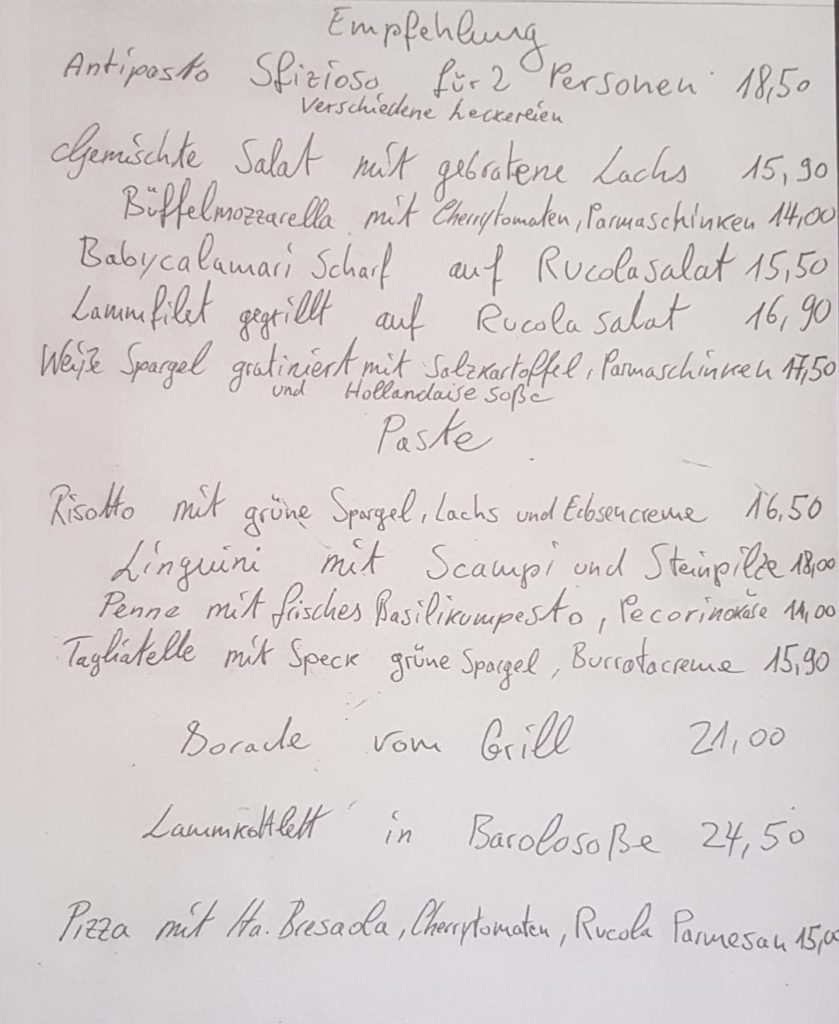 Empfehlung
Antipasto Sfizioso für 2 Personen 18,50
Verschiedene Leckereien
Gemischte Salat mit gebratene Lachs 15,90
Büffelmozzarella mit Cherrytomaten, Parmaschinken 14,00
Babycalamari Scharf auf Rucolasalat 15,50
Lammfilet gegrillt auf Rucola salat 16,90
Weiße Spargel gratiniert mit Salzkartoffel, Parmaschinken 17,50
und Hollandaise Soße
Paste
Risotto mit grüne Spargel, Lachs und Erbsencreme 16,50
Linguini mit Scampi und Steinpilze 18,00
Penne mit frisches Basilikumpesto, Pecorinokäse
Tagliatelle mit Speck grüne Spargel, Burrotacreme 15,90
Dorade vom Grill 21,00
Lammkottlett in Barolosoße 24,50
Pizza mit Ita. Bresaola, Cherrytomaten, Rucola Parmesan 15,00